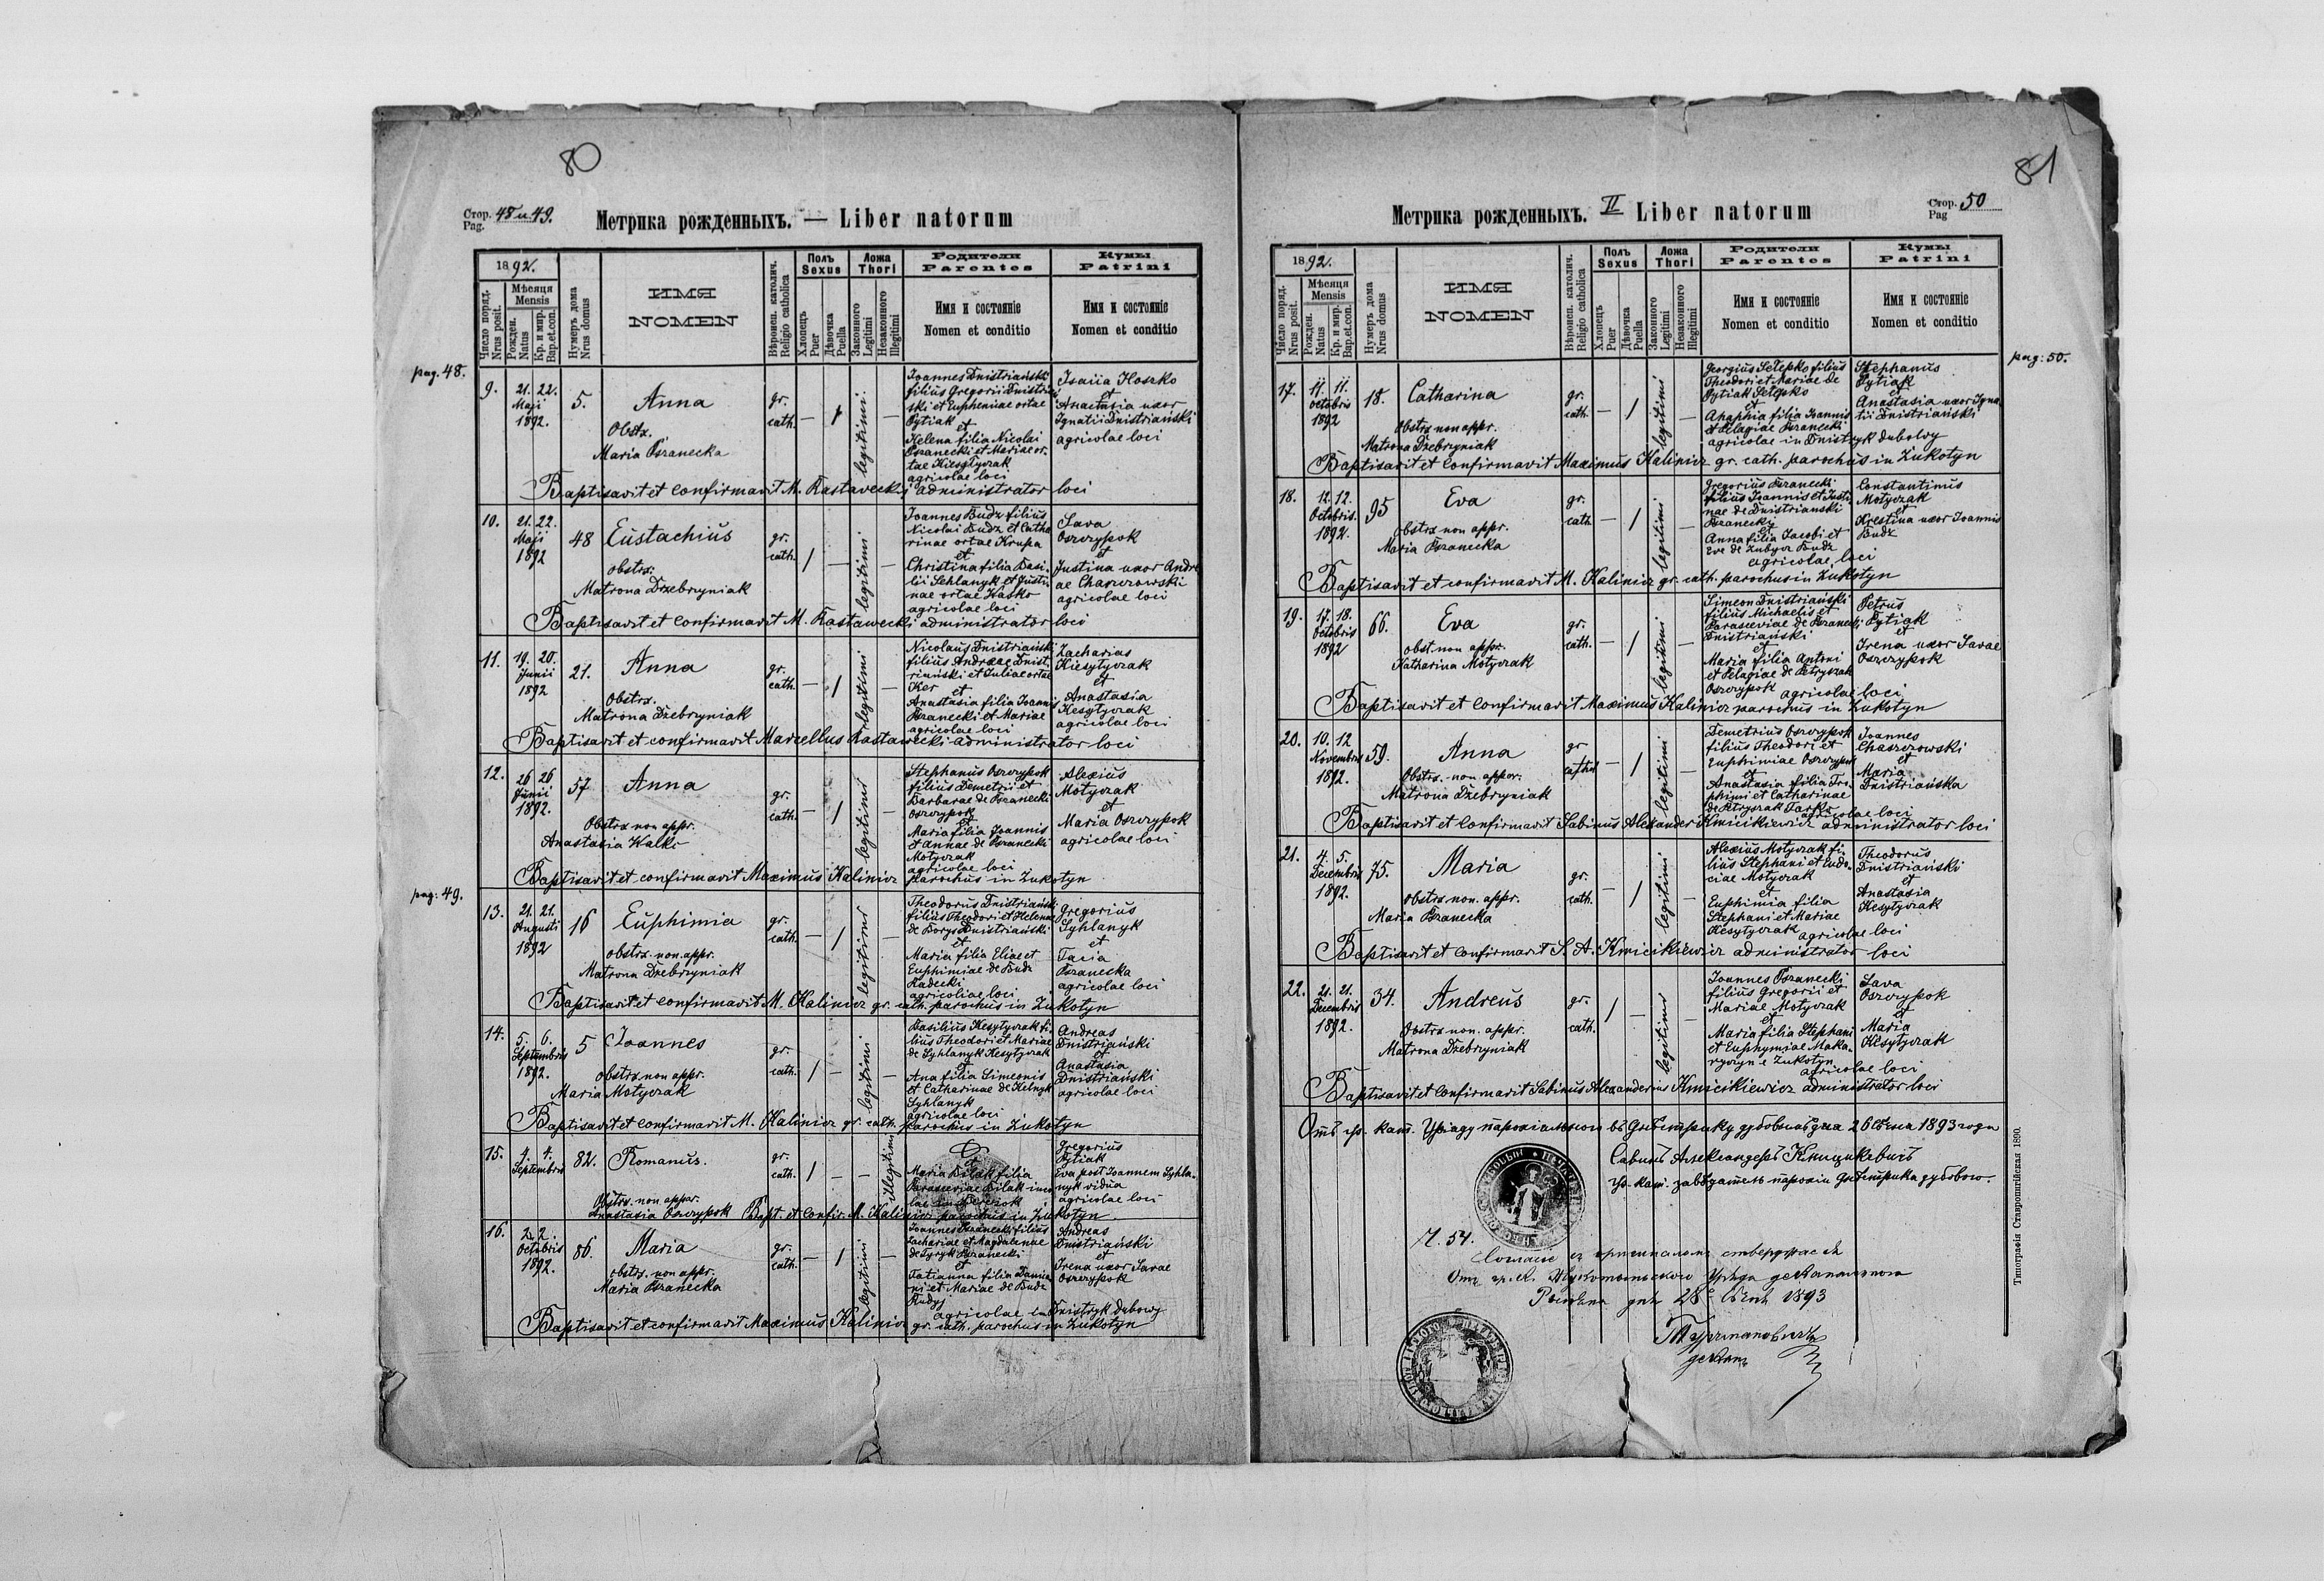 80
Стор. 48 и 49.
Pag.
Метрика рожденныхъ. — Liber natorum
1892.
Число поряд.
Nrus posit.
Мѣсяця
Mensis
Рожден.
Natus
Кр. и мир.
Bap.et.con.
Нумеръ дома
Nrus domus
ИМЯ
NOMEN
Вѣроисп. католич.
Religio catholica
Полъ
Sexus
Хлопецъ
Puer
Дѣвочка
Puella
Ложа
Thori
Законного
Legitimi
Незаконного
Illegitimi
Родители
Parentes
Имя и состояніе
Nomen et conditio
Кумы
Patrini
Имя и состояніе
Nomen et conditio
pag. 48.
9.
21. 22.
Maji
1892.
5.
Anna
Obstx.
Maria Pzanecka
gr.
cath.
— 1
legitimi
—
Joannes Dnistriański
filius Gregorii Dnistriań
ski et Euphemiae ortae
Pytiak
et
Helena filia Nicolai
Pzanecki et Mariae or-
tae Kiesytyczak
agricolae loci
Isaiia Hoszko
et
Anastasia uxor
Ignatii Dnistriański
agricolae loci
Baptisavit et confirmavit M. Rastawecki administrator loci
10.
21. 22.
Maji
1892
48
Eustachius
obstx.
Matrona Dzebryniak
gr.
cath.
1 —
legitimi
—
Joannes Budz filius
Nicolai Budz et Catha
rinae ortae Krupa
et
Christina filia Basi-
lii Sehlanyk et Justi-
nae ortae Hasko
agricolae loci
Sava
Oszczypok
et
Justina uxor Andre
ae Chaszczowski
agricolae loci
Baptisavit et confirmavit M. Rastawecki administrator loci
11.
19. 20.
Junii
1892
21.
Anna
Obstx.
Matrona Dzebryniak
gr.
cath.
— 1
legitimi
—
Nicolaus Dnistriański
filius Andreae Dnist.
riański et Juliae ortae
Ker
et
Anastasia filia Joannis
Pzanecki et Mariae
agricolae loci
Zacharias
Kiesytyczak
et
Anastasia
Kesytyczak
agricolae loci
Baptisavit et confirmavit Marcellus Rastawecki administrator loci
12.
26 26
Junii
1892.
57
Anna
Obstx non appr.
Anastasia Halko
gr.
cath.
— 1
legitimi
Stephanus Oszczypok
filius Demetrii et
Barbarae de Pzanecki
Oszczypok
et
Maria filia Joannis
et Annae de Pzanecki
Motyczak
agricolae loci
Alexius
Motyczak
et
Maria Oszczypok
agricolae loci
Baptisavit et confirmavit Maximus Kalinicz parochus in Zukotyn
pag: 49.
13.
21. 21.
Augusti
1892
16
Euphimia
obstx. non. appr.
Matrona Dzebryniak
gr.
cath.
— 1
legitimi
—
Theodorus Dnistriański
filius Theodori et Helenae
de Borys Dnistriański
et
Maria filia Eliae et
Euphimiae de Budz
Radecki
agricoliae loci
Gregorius
Syhlanyk
et
Tacia
Pzaneska
agricolae loci
Baptisavit et confirmavit M. Kalinicz gr. cath. parochus in Zukotyn
14.
5. 6.
Septembris
1892.
5
Joannes
obstx non appr.
Maria Motyczak
gr.
cath.
1 —
legitimi
—
Basilius Kesytyczak fi-
lius Theodori et Mariae
de Syhlanyk Kesytyczak
et
Ana filia Simeonis
et Catharinae de Hetnyk
Syhlanyk
agricolae loci
Andreas
Dnistriański
et
Anastasia
Dnistriański
agricolae loci
Baptisavit et confirmavit M. Kalinicz gr. cath. parochus in Zukotyn
15.
4. 4.
Septembris
82.
Romanus.
Obstx. non appr.
Anastasia Oszczypok
gr.
cath.
1 — —
illegitimi
Maria Bilak filia
Parasceviae Bilak inco
lae in Berezok
Gregorius
Pytiak
Eva post Joannem Syhla-
nyk vidua
agricolae loci
Bapt. et Confir. M. Kalinicz parochus in Zukotyn
16.
2. 2.
Octobris
1892.
86.
Maria
obstx. non appr.
Maria Pzanecka
gr.
cath.
— 1
legitimi
—
Joannes Pzanecki filius
Zachariae et Magdalenae
de Tyryk Pzanecki
et
Tatianna filia Danie
ni et Mariae de Budz
Rudyj
agricolae in Dnistryk dubowy
Andreas
Dnistriański
et
Irena uxor Savae
Oszczypok
Baptisavit et confirmavit Maximus Kalinicz gr. cath. parochus in Zukotyn
81
Метрика рожденныхъ. II Liber natorum
Стор. 50
Pag
1892.
Число поряд.
Nrus posit.
Мѣсяця
Mensis
Рожден.
Natus
Кр. и мир.
Bap.et.con.
Нумеръ дома
Nrus domus
ИМЯ
NOMEN
Вѣроисп. католич.
Religio catholica
Полъ
Sexus
Хлопецъ
Puer
Дѣвочка
Puella
Ложа
Thori
Законного
Legitimi
Незаконного
Illegitimi
Родители
Parentes
Имя и состояніе
Nomen et conditio
Кумы
Patrini
Имя и состояніе
Nomen et conditio
pag: 50.
17.
11. 11.
Octobris
1892
18.
Catharina
Obstx non appr.
Matrona Dzebryniak
gr.
cath.
— 1
legitimi
—
Georgius Setepko filius
Theodori et Mariae de
Pytiak Setepko
et
Anaphia filia Joannis
et Pelagiae Pzanecki
agricolae in Dnistryk dubowy
Stephanus
Pytiak
et
Anastasia uxor Igna
tii Dnistriański
Baptisavit et confirmavit Maximus Kalinicz gr. cath. parochus in Zukotyn
18.
12. 12.
Octobris.
1892.
95
Eva
obstx non appr.
Maria Pzanecka
gr.
cath
— 1
legitimi
—
Gregorius Pzanecki
filius Joannis et Justi-
nae de Dnistrianski
Pzanecky
Anna filia Jacobi et
Eve de Zubycz Budz
agricolae loci
Constantinus
Motyczak
et
Krestina uxor Joannis
Budz
Baptisavit et confirmavit M. Kalinicz gr. cath. parochus in Zukotyn
19.
17. 18.
Octobris
1892
66.
Eva
obst. non appr.
Katharina Motyczak
gr.
cath.
— 1
legitimi
—
Simeon Dnistriański
filius Michaelis et
Parasceviae de Pzanecki
Dnistriański
et
Maria filia Antoni
et Pelagiae de Petryszak
Oszczypok agricolae loci
Petrus
Pytiak
et
Irena uxor Savae
Oszczypok
Baptisavit et confirmavit Maximus Kalinicz parochus in Zukotyn
20.
10. 12
Novembris
1892.
59.
Anna
Obstx. non appr.
Matrona Dzebryniak
gr
cath
— 1
legitimi
—
Demetrius Oszczypok
filius Theodori et
Euphimiae Oszczypok
et
Anastasia filia Tro-
phimi et Catharinae
de Petryszak Tarko
agricolae loci
Joannes
Chaszczowski
et
Maria
Dnistriańska
Baptisavit et confirmavit Sabinus Alexander Kmicikiewicz administrator loci
21.
4. 5.
Decembris
1892.
75.
Maria
obstx. non. appr.
Maria Pzanecka
gr.
cath.
— 1
legitimi
—
Alexius Motyczak fi-
lius Stephani et Eudo-
ciae Motyczak
et
Euphimia filia
Stephani et Mariae
Kesytyczak agricolae loci
Theodorus
Dnistriański
et
Anastasia
Kesytyczak
Baptisavit et confirmavit S. A. Kmicikiewicz administrator loci
22.
21. 21.
Decembris
1892.
34.
Andreus
Obstx non. appr.
Matrona Dzebryniak
gr.
cath.
1 —
legitimi
—
Joannes Pzanecki
filius Gregorii et
Mariae Motyczak
et
Maria filia Stephani
et Euphymiae Maka-
ryczyn e Zukotyn
agricolae loci
Sava
Oszczypok
et
Maria
Kesytyczak
Baptisavit et confirmavit Sabinus Alexandrius Kmicikiewicz administrator loci
Отъ гр. кат. Уряду парохіального въ Днѣстрику дубовомъ дня 26 Сѣчня 1893 года
Савинъ Александеръ Кмицикевичъ
гр. кат. завѣдатель парохіи Днѣстрика дубового.
Ч. 54.
Согласіе съ оригиналомъ стверджає ся
Отъ гр. к. Жукотинского Уряда деканального
дня 28 Сѣчня 1893
деканъ
Типографія Ставропигійская 1890.